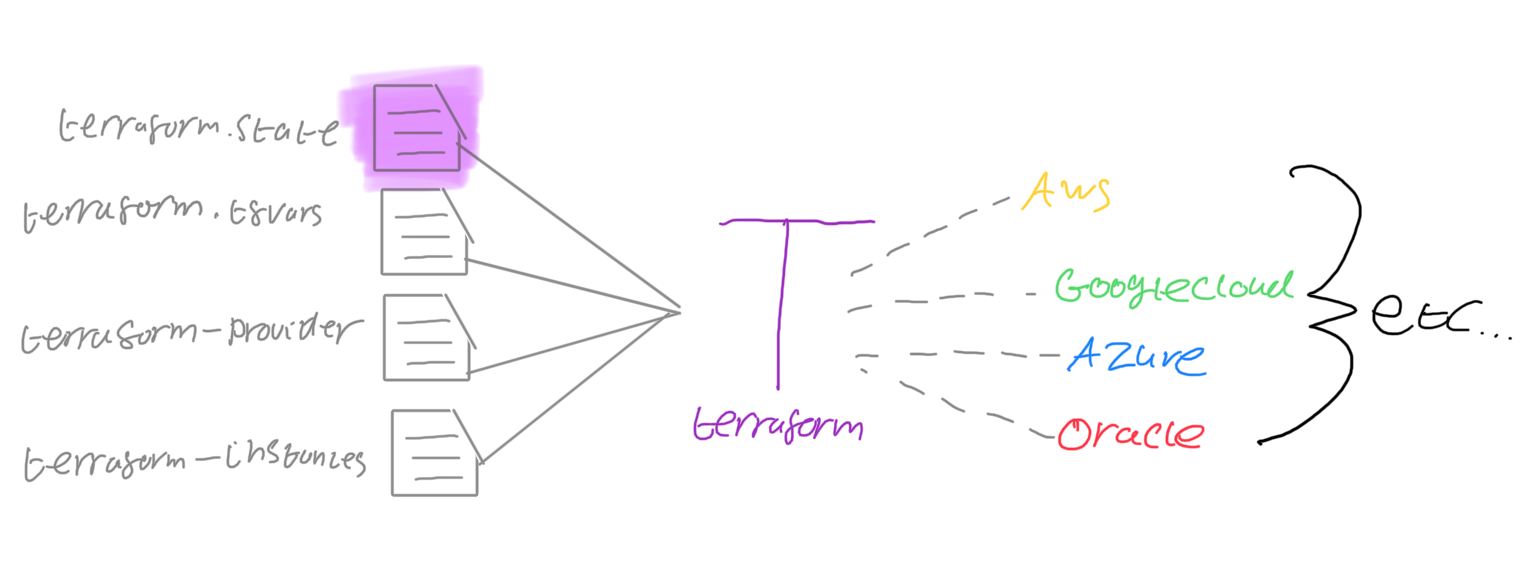 terraform.state
terraform.tfvars
terraform-provider
terraform-instances
T
terraform
Aws
Googlecloud
Azure
Oracle
etc...